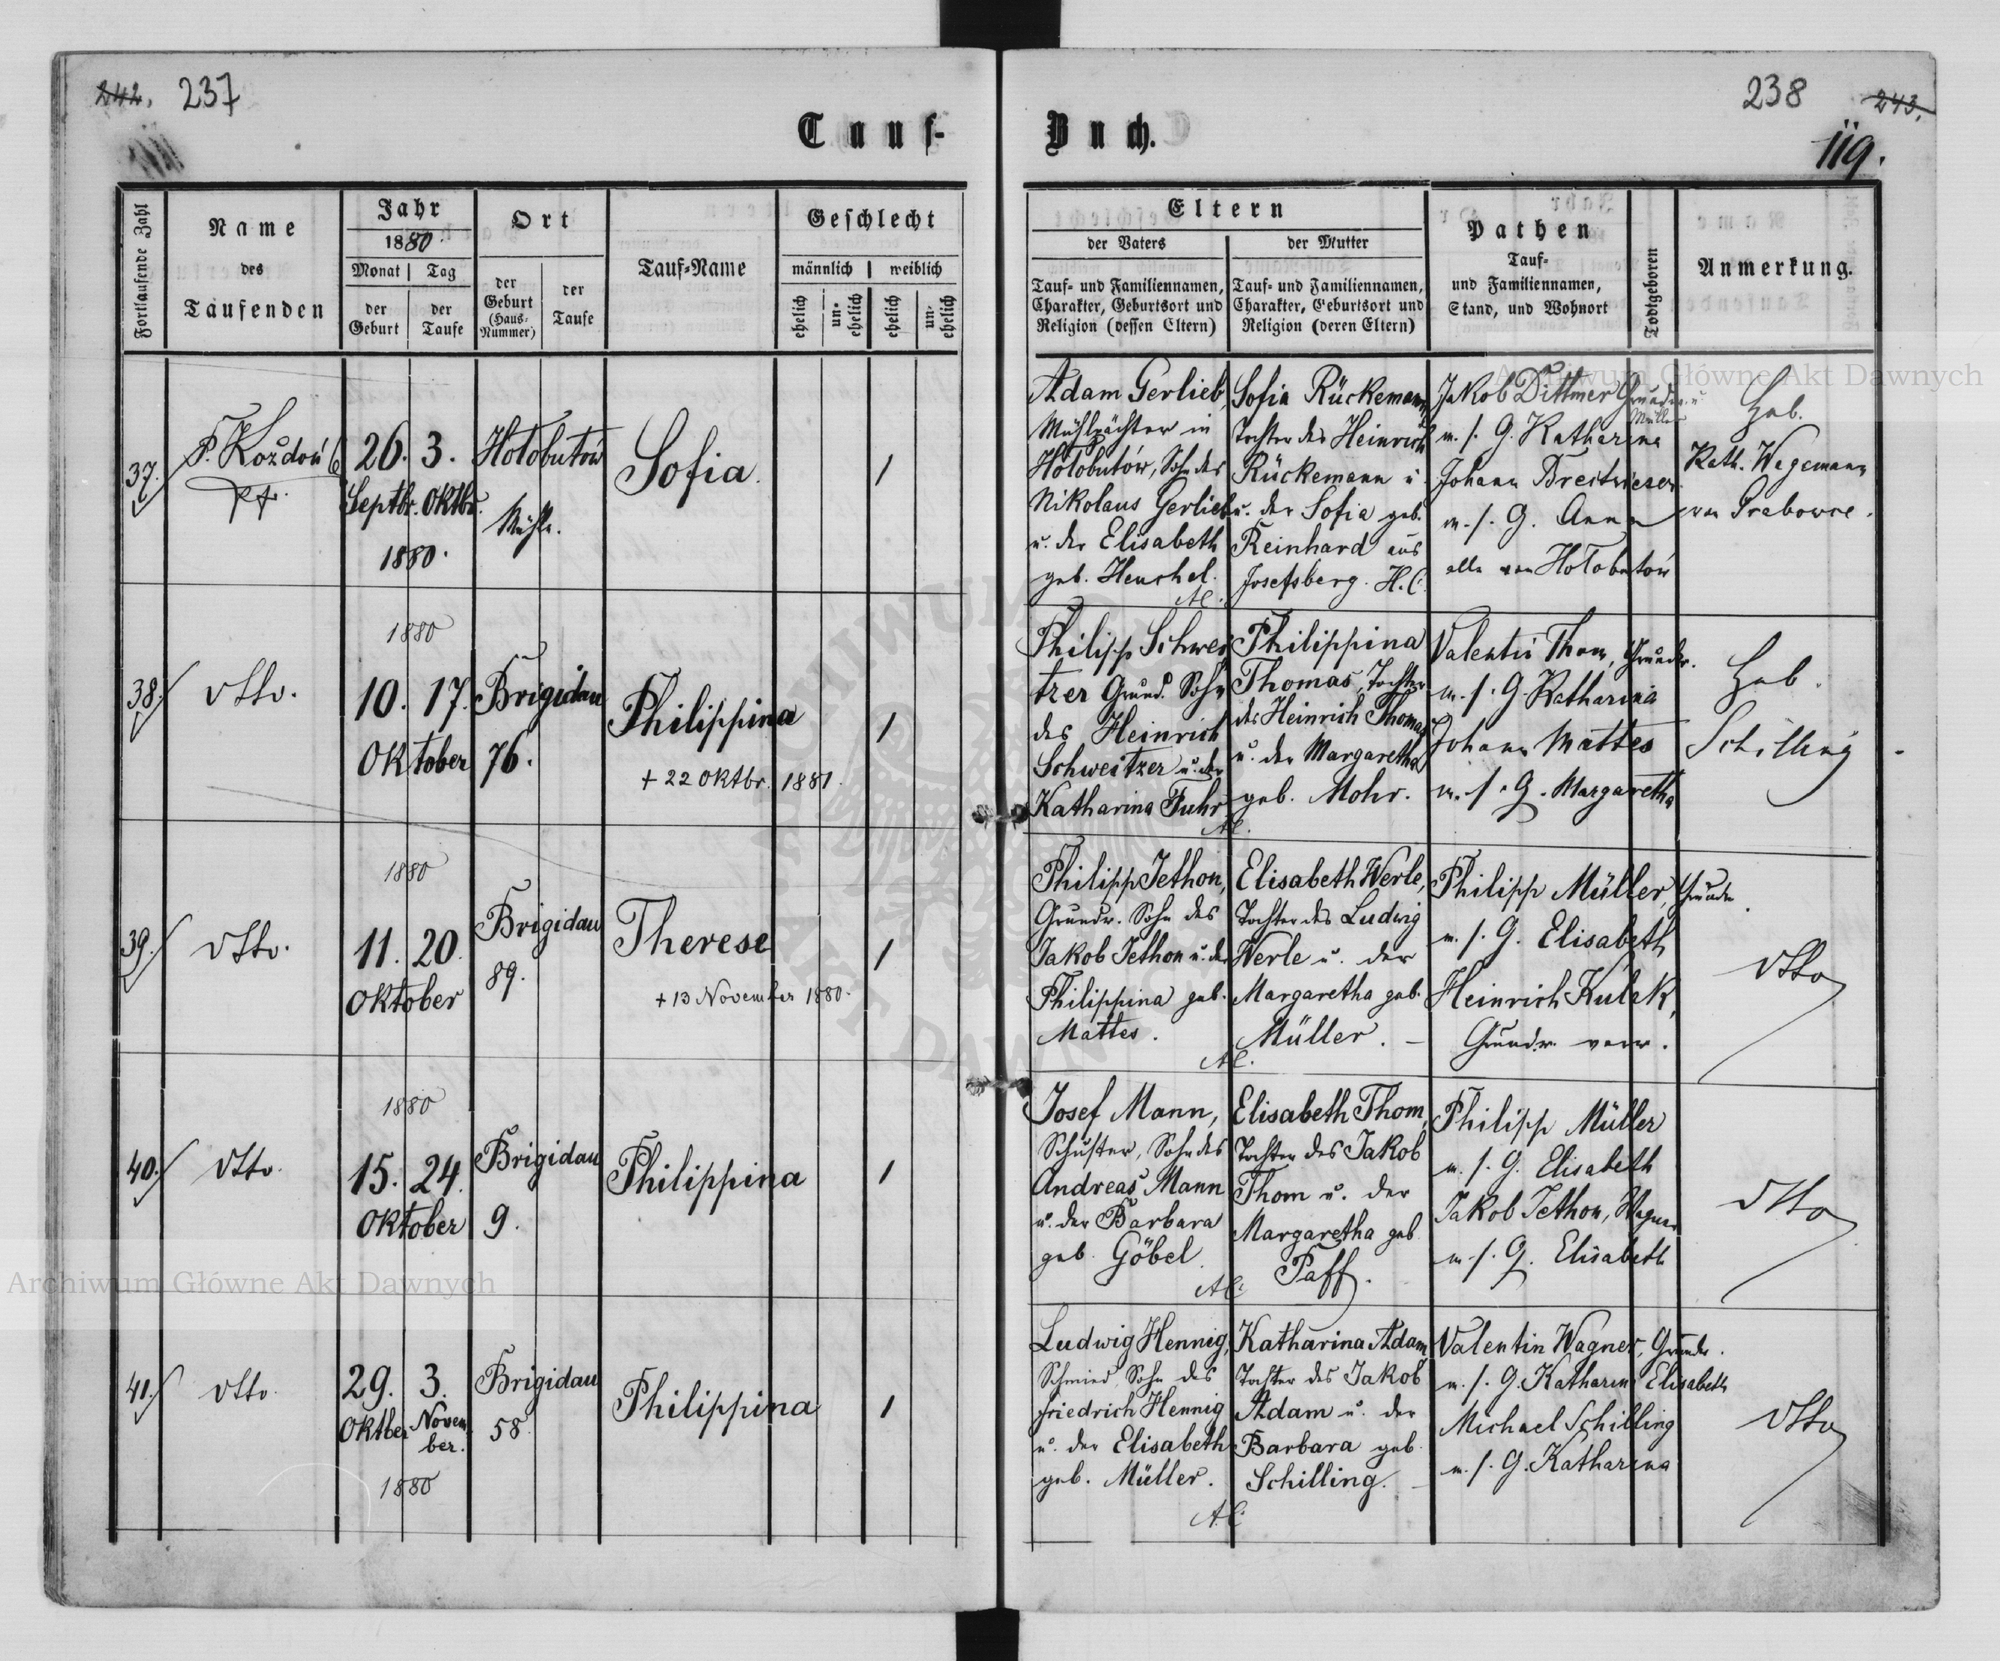 242. 237
Tauf-
Fortlaufende Zahl
Name
des
Taufenden
Jahr
1880.
Monat
Tag
der
Geburt
der
Taufe
Ort
der
Geburt
(Haus-
Nummer)
der
Taufe
Tauf-Name
Geschlecht
männlich
weiblich
ehelich
un-
ehelich
ehelich
un-
ehelich
37.
26. 3.
Septbr. Oktbr.
1880.
Hołobutów
Mühle.
Sofia.
1
38.
dtto.
1880
10. 17.
Oktober
Brigidau
76.
Philippina
+ 22 Oktbr. 1881.
1
39.
dtto.
1880
11. 20.
Oktober
Brigidau
89.
Therese
+ 13 November 1880.
1
40.
dtto.
1880
15. 24.
Oktober
Brigidau
9.
Philippina
1
41.
dtto.
29. 3.
Oktber Novem
ber.
1880
Brigidau
58.
Philippina
1
238 243.
119.
Buch.
Eltern
der Vaters
der Mutter
Tauf- und Familiennamen,
Charakter, Geburtsort und
Religion (dessen Eltern)
Tauf- und Familiennamen,
Charakter, Geburtsort und
Religion (deren Eltern)
Pathen
Tauf-
und Familiennamen,
Stand, und Wohnort
Todtgeboren
Anmerkung.
Adam Gerlieb,
Mühlpächter in
Hołobutów, Sohn des
Nikolaus Gerlieb
u. der Elisabeth
geb. Henchel.
Sofia Rückemann,
Tochter des Heinrich
Rückemann u
u. der Sofia geb.
Reinhard aus
Josefsberg. H.C.
Jakob Dittmer Grundw. u
Müller
m. s. G. Katharina
Johann Breitwieser
m. s. G. Anna
alle von Hołobutów
Heb.
Kath. Wagemann
von Grabowce.
Philipp Schwei
tzer Grund. Sohn
des Heinrich
Schweitzer u. der
Katharina Fuhr
Philippina
Thomas, Tochter
des Heinrich Thomas
u. der Margaretha
geb. Mohr.
Valentin Thom, Grundw.
m. s. G. Katharina
Johann Mattes
m. s. G. Margaretha
Heb.
Schilling
Philipp Jethon,
Grundw. Sohn des
Jakob Jethon u. der
Philippina geb.
Mattes.
Elisabeth Werle,
Tochter des Ludwig
Werle u. der
Margaretha geb.
Müller.
Philipp Müller, Grundw.
m. s. G. Elisabeth
Heinrich Kulak,
Grundw. verw.
dtto
Josef Mann,
Schuster, Sohn des
Andreas Mann
u. der Barbara
geb. Göbel
Elisabeth Thom,
Tochter des Jakob
Thom u. der
Margaretha geb
Paff.
Philipp Müller
m. s. G. Elisabeth
Jakob Jethon, Wagner
m. s. G. Elisabeth
dtto
Ludwig Hennig,
Schmied, Sohn des
Friedrich Hennig
u. der Elisabeth
geb. Müller.
Katharina Adam
Tochter des Jakob
Adam u. der
Barbara geb
Schilling.
Valentin Wagner, Grundw.
m. s. G. Katharina Elisabeth
Michael Schilling
m. s. G. Katharina
dtto
Archiwum Główne Akt Dawnych
Archiwum Główne Akt Dawnych